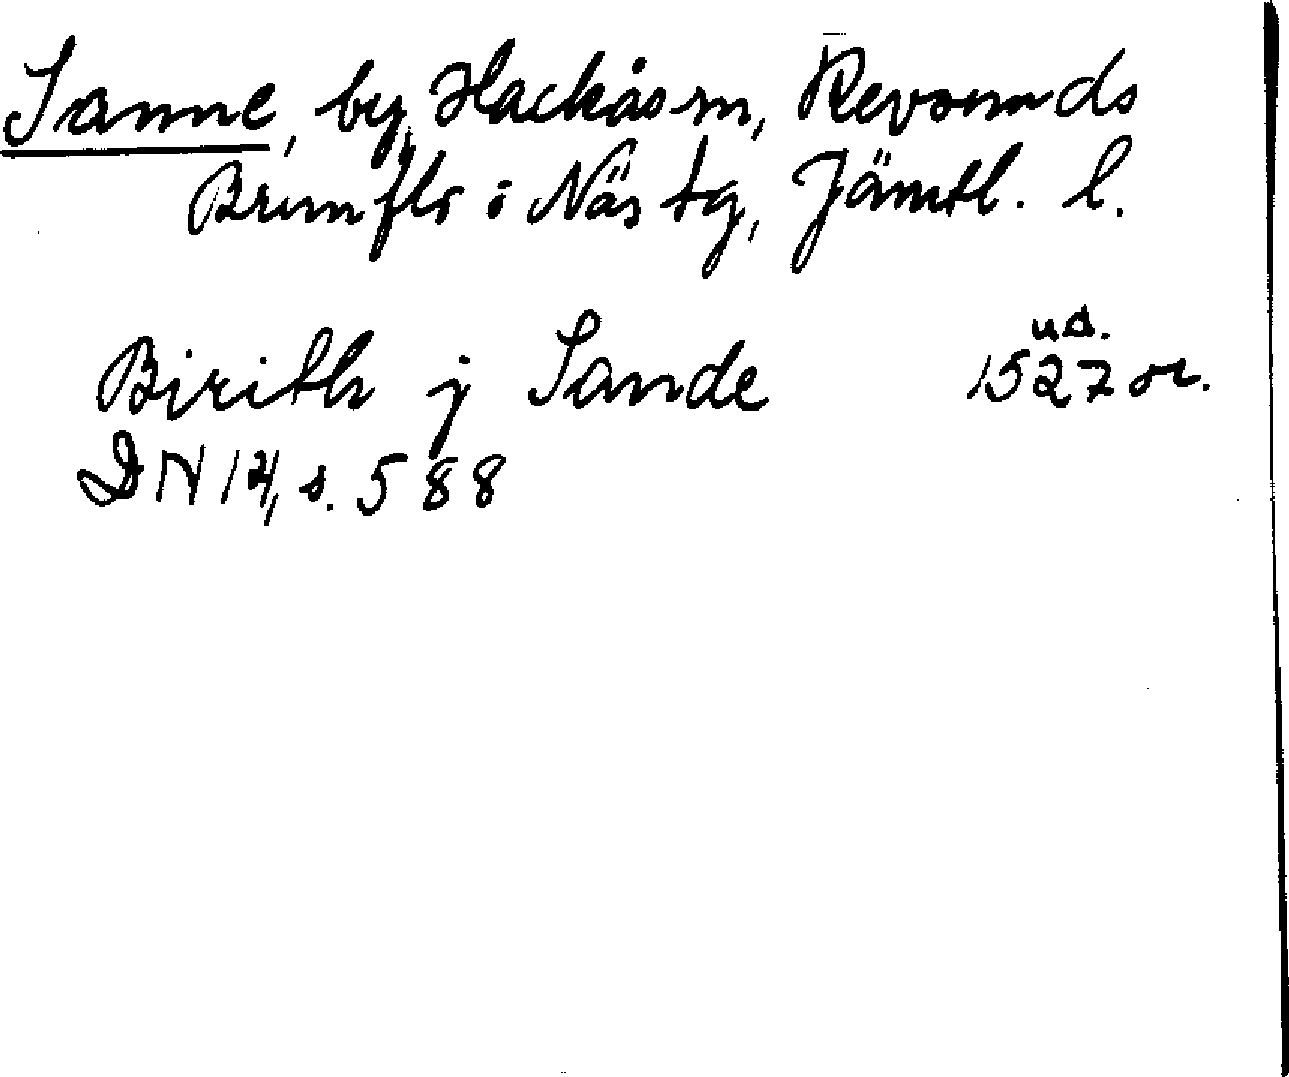 Sanne, by, Hackås sn, Revsunds
Brunflo o Näs tg, Jämtl. l.
u.d.
Birith j Sande 1527 or.
DN 14, s. 588